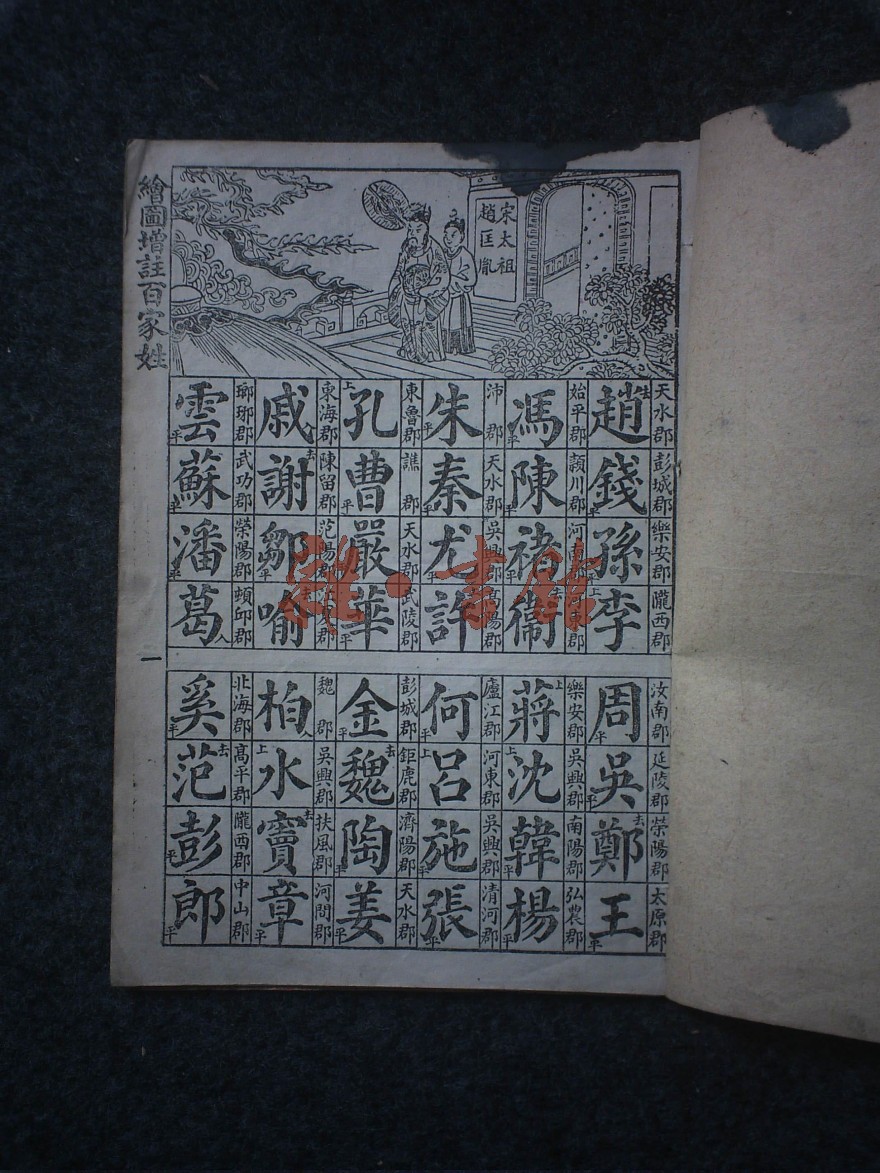 繪圖增註百家姓
宋太祖
趙匡胤
天水郡 彭城郡 樂安郡 隴西郡
趙錢孫李
始平郡 潁川郡 河
馮陳褚衛
沛郡 天水郡 吳興郡 高陽郡
朱秦尤許
東魯郡 譙郡 天水郡 武陵郡
孔曹嚴華
東海郡 陳留郡 范陽郡
戚謝鄒喻
瑯琊郡 武功郡 榮陽郡 頓邱郡
雲蘇潘葛
汝南郡 延陵郡 榮陽郡 太原郡
周吳鄭王
樂安郡 吳興郡 南陽郡 弘農郡
蔣沈韓楊
廬江郡 河東郡 吳興郡 清河郡
何呂施張
彭城郡 鉅鹿郡 濟陽郡 天水郡
金魏陶姜
魏郡 吳興郡 扶風郡 河間郡
柏水竇章
北海郡 高平郡 隴西郡 中山郡
奚范彭郎
一
雜·書館